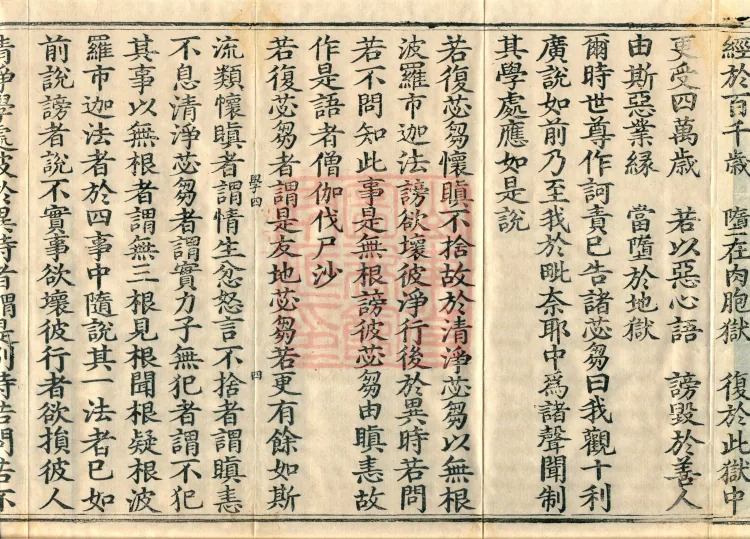 經於百千歲　墮在肉胞獄　復於此獄中
更受四萬歲　若以惡心語　謗毀於善人
由斯惡業緣　當墮於地獄
爾時世尊作訶責已告諸苾芻曰我觀十利
廣說如前乃至我於毗奈耶中為諸聲聞制
其學處應如是說
若復苾芻懷瞋不捨故於清淨苾芻以無根
波羅市迦法謗欲壞彼淨行後於異時若問
若不問知此事是無根謗彼苾芻由瞋恚故
作是語者僧伽伐尸沙
若復苾芻者謂是友地苾芻若更有餘如斯
學四　四
流類懷瞋者謂情生忿怒言不捨者謂瞋恚
不息清淨苾芻者謂實力子無犯者謂不犯
其事以無根者謂無三根見根聞根疑根波
羅市迦法者於四事中隨說其一法者已如
前說謗者說不實事欲壞彼行者欲損彼人
清淨學處彼於異時者謂是別時若問若不